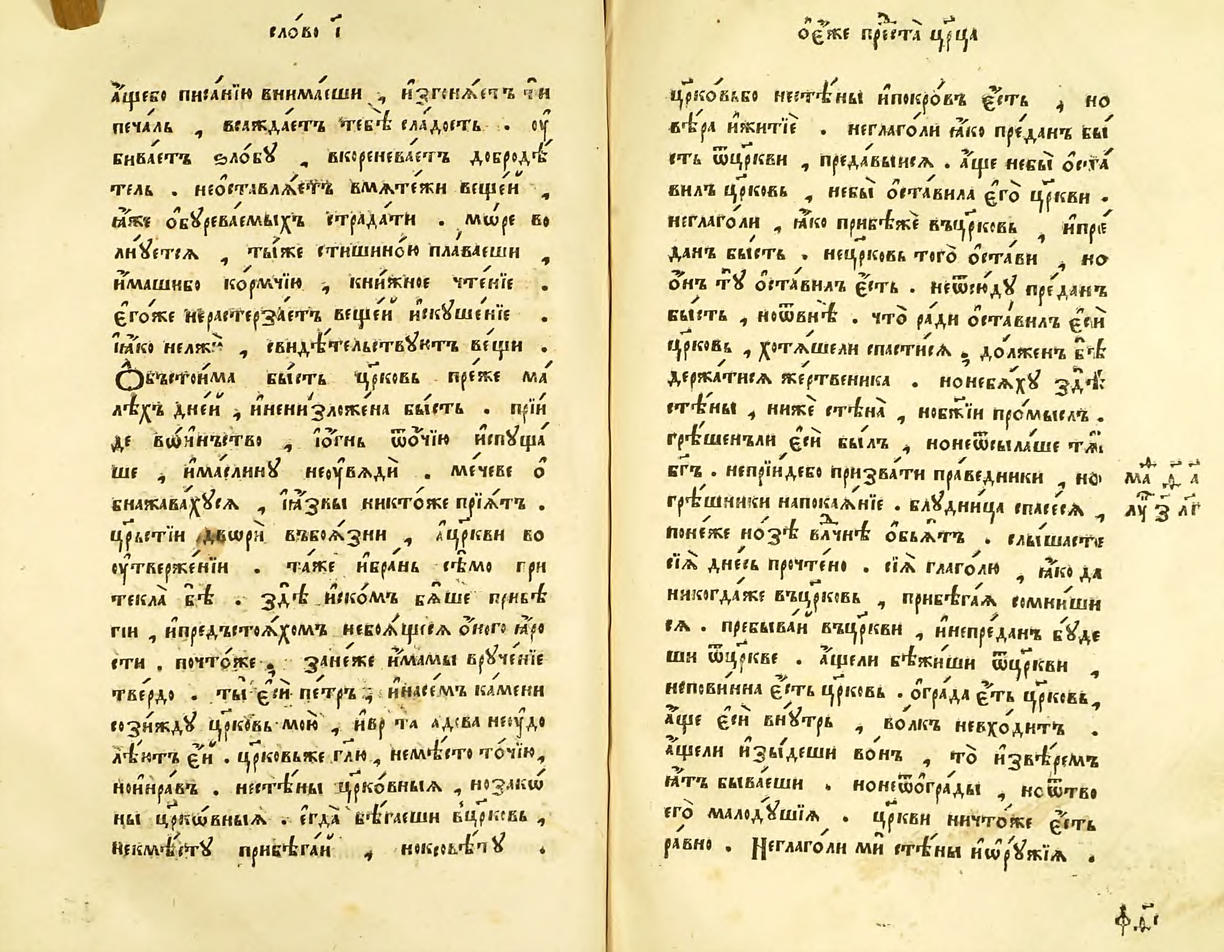 сло́во і҃
а҆́щебо писа́нїю внима́еши , и҆згоня́етъ ти
печа́ль , всажда́етъ тебѣ̀ сла́дость . оу҆
бива́етъ ѕло́бꙋ , вкореневае́тъ добродѣ́
тель . неѡ҆ставля́етъ вмѧте́жи веще́й ,
ꙗ҆́же о҆бꙋрева́емыхъ страда́ти . мо́ре во
лнꙋ́етсѧ , ты́же стишино́ю пла́ваеши ,
и҆́машибо ко́рмчїю , кни́жное чте́нїе .
є҆го́же нерастерза́етъ веще́й и҆скꙋше́нїе .
ꙗ҆́ко нелжѐ , свидѣ́тельствꙋютъ ве́щи .
О҆бъсто́има бы́сть цр҃ковь пре́же ма́
лѣхъ дне́й , и҆ненизложе́на бы́сть . прїи́
де во́инъство , і҆о҆́гнь ѿо́чїю и҆спꙋща́
ше , и҆ма́слинꙋ неоу҆вѧдѝ . ме́чеве о҆
бнажава́хꙋсѧ , і҆ꙗ҆́звы никто́же прїѧ́тъ .
цр҃ьстїи дво́ри въбоѧ́зни , а҆цр҃кви во
оу҆твержде́нїи . та́же и҆бра́нь сѣ́мо при
текла̀ бѣ̀ . здѣ̀ и҆ско́мъ бѧ́ше прибѣ́
гїи , и҆предъстоѧ́хомъ небоѧ́щесѧ о҆́ного ꙗ҆́ро
сти . почто́же , зане́же и҆́мамы врꙋче́нїе
тве́рдо . ты̀ є҆сѝ пе́тръ , и҆насе́мъ ка́мени
сози́ждꙋ цр҃ковь мою̀ , и҆вр та а́дова неоу҆до
лѣ́ютъ є҆́й . цр҃ковьже гл҃ю , немѣ́сто то́чїю ,
нои҆нра́въ . нестѣ́ны цр҃ко́вныѧ , нозако́
ны цр҃ко́вныѧ . є҆гда̀ бѣ́гаеши вцр҃ковь ,
некмѣ́стꙋ прибѣга́й ,ноксовѣ́тꙋ .
о҆є҆́же прест҃а̀ цр҃ца
цр҃ко́вьбо нестѣ́ны и҆покро́въ є҆́сть , но
вѣ́ра и҆житїѐ . неглаго́ли ꙗ҆́ко пре́данъ бы́
сть ѿцр҃кви , преда́выисѧ . а҆́ще небы̀ о҆ста́
вилъ цр҃ковь , небы̀ о҆ста́вила є҆го̀ цр҃кви .
неглаго́ли , ꙗ҆́ко прибѣ́же въцр҃ковь , и҆пре́
данъ бы́сть . нецр҃ковь того̀ о҆ста́ви , но
о҆́нъ тꙋ̀ о҆ста́вилъ є҆́сть . неѿсю́дꙋ пре́данъ
бы́сть , ноѿвнѣ̀ . что̀ ра́ди о҆ста́вилъ є҆сѝ
цр҃ковь , хотѧ́шели спасти́сѧ , до́лженъ бѣ̀
держа́тисѧ же́ртвеника . нонебѧ́хꙋ здѣ̀
стѣ́ны , нижѐ стѣна̀ , нобж҃їи про́мыслъ .
грѣ́шенъли є҆сѝ бы́лъ , нонеѿсыла́ше тѧ̀
бг҃ъ . непрїи́дебо призва́ти пра́ведники , но
грѣ́шники напокаѧ́нїе . блꙋдни́ца спасе́сѧ ,
поне́же но́зѣ вл҃чнѣ о҆бьѧ́тъ . слы́шасте
сїѧ̀ дне́сь прочте́но . сїѧ̀ глаго́лю , ꙗ҆́ко да
никогда́же въцр҃ковь , прибѣга́ѧ сомни́ши
сѧ . пребыва́й въцр҃кви , и҆непре́данъ бꙋ́де
ши ѿцр҃кве . а҆́щели бѣжи́ши ѿцр҃кви ,
непови́нна є҆́сть цр҃ковь . о҆гра́да є҆́сть цр҃ковь ,
а҆́ще є҆сѝ внꙋ́трь , во́лкъ невхо́дитъ .
а҆́щели и҆зы́деши во́нъ , то̀ и҆звѣ́ремъ
ꙗ҆́тъ быва́еши . нонеѿо҆гра́ды , ноѿтво
его̀ малодꙋ́шїѧ . цр҃кви ничто́же є҆́сть
ра́вно . Неглаго́ли мѝ стѣ́ны и҆ѡ҆рꙋ́жїѧ .